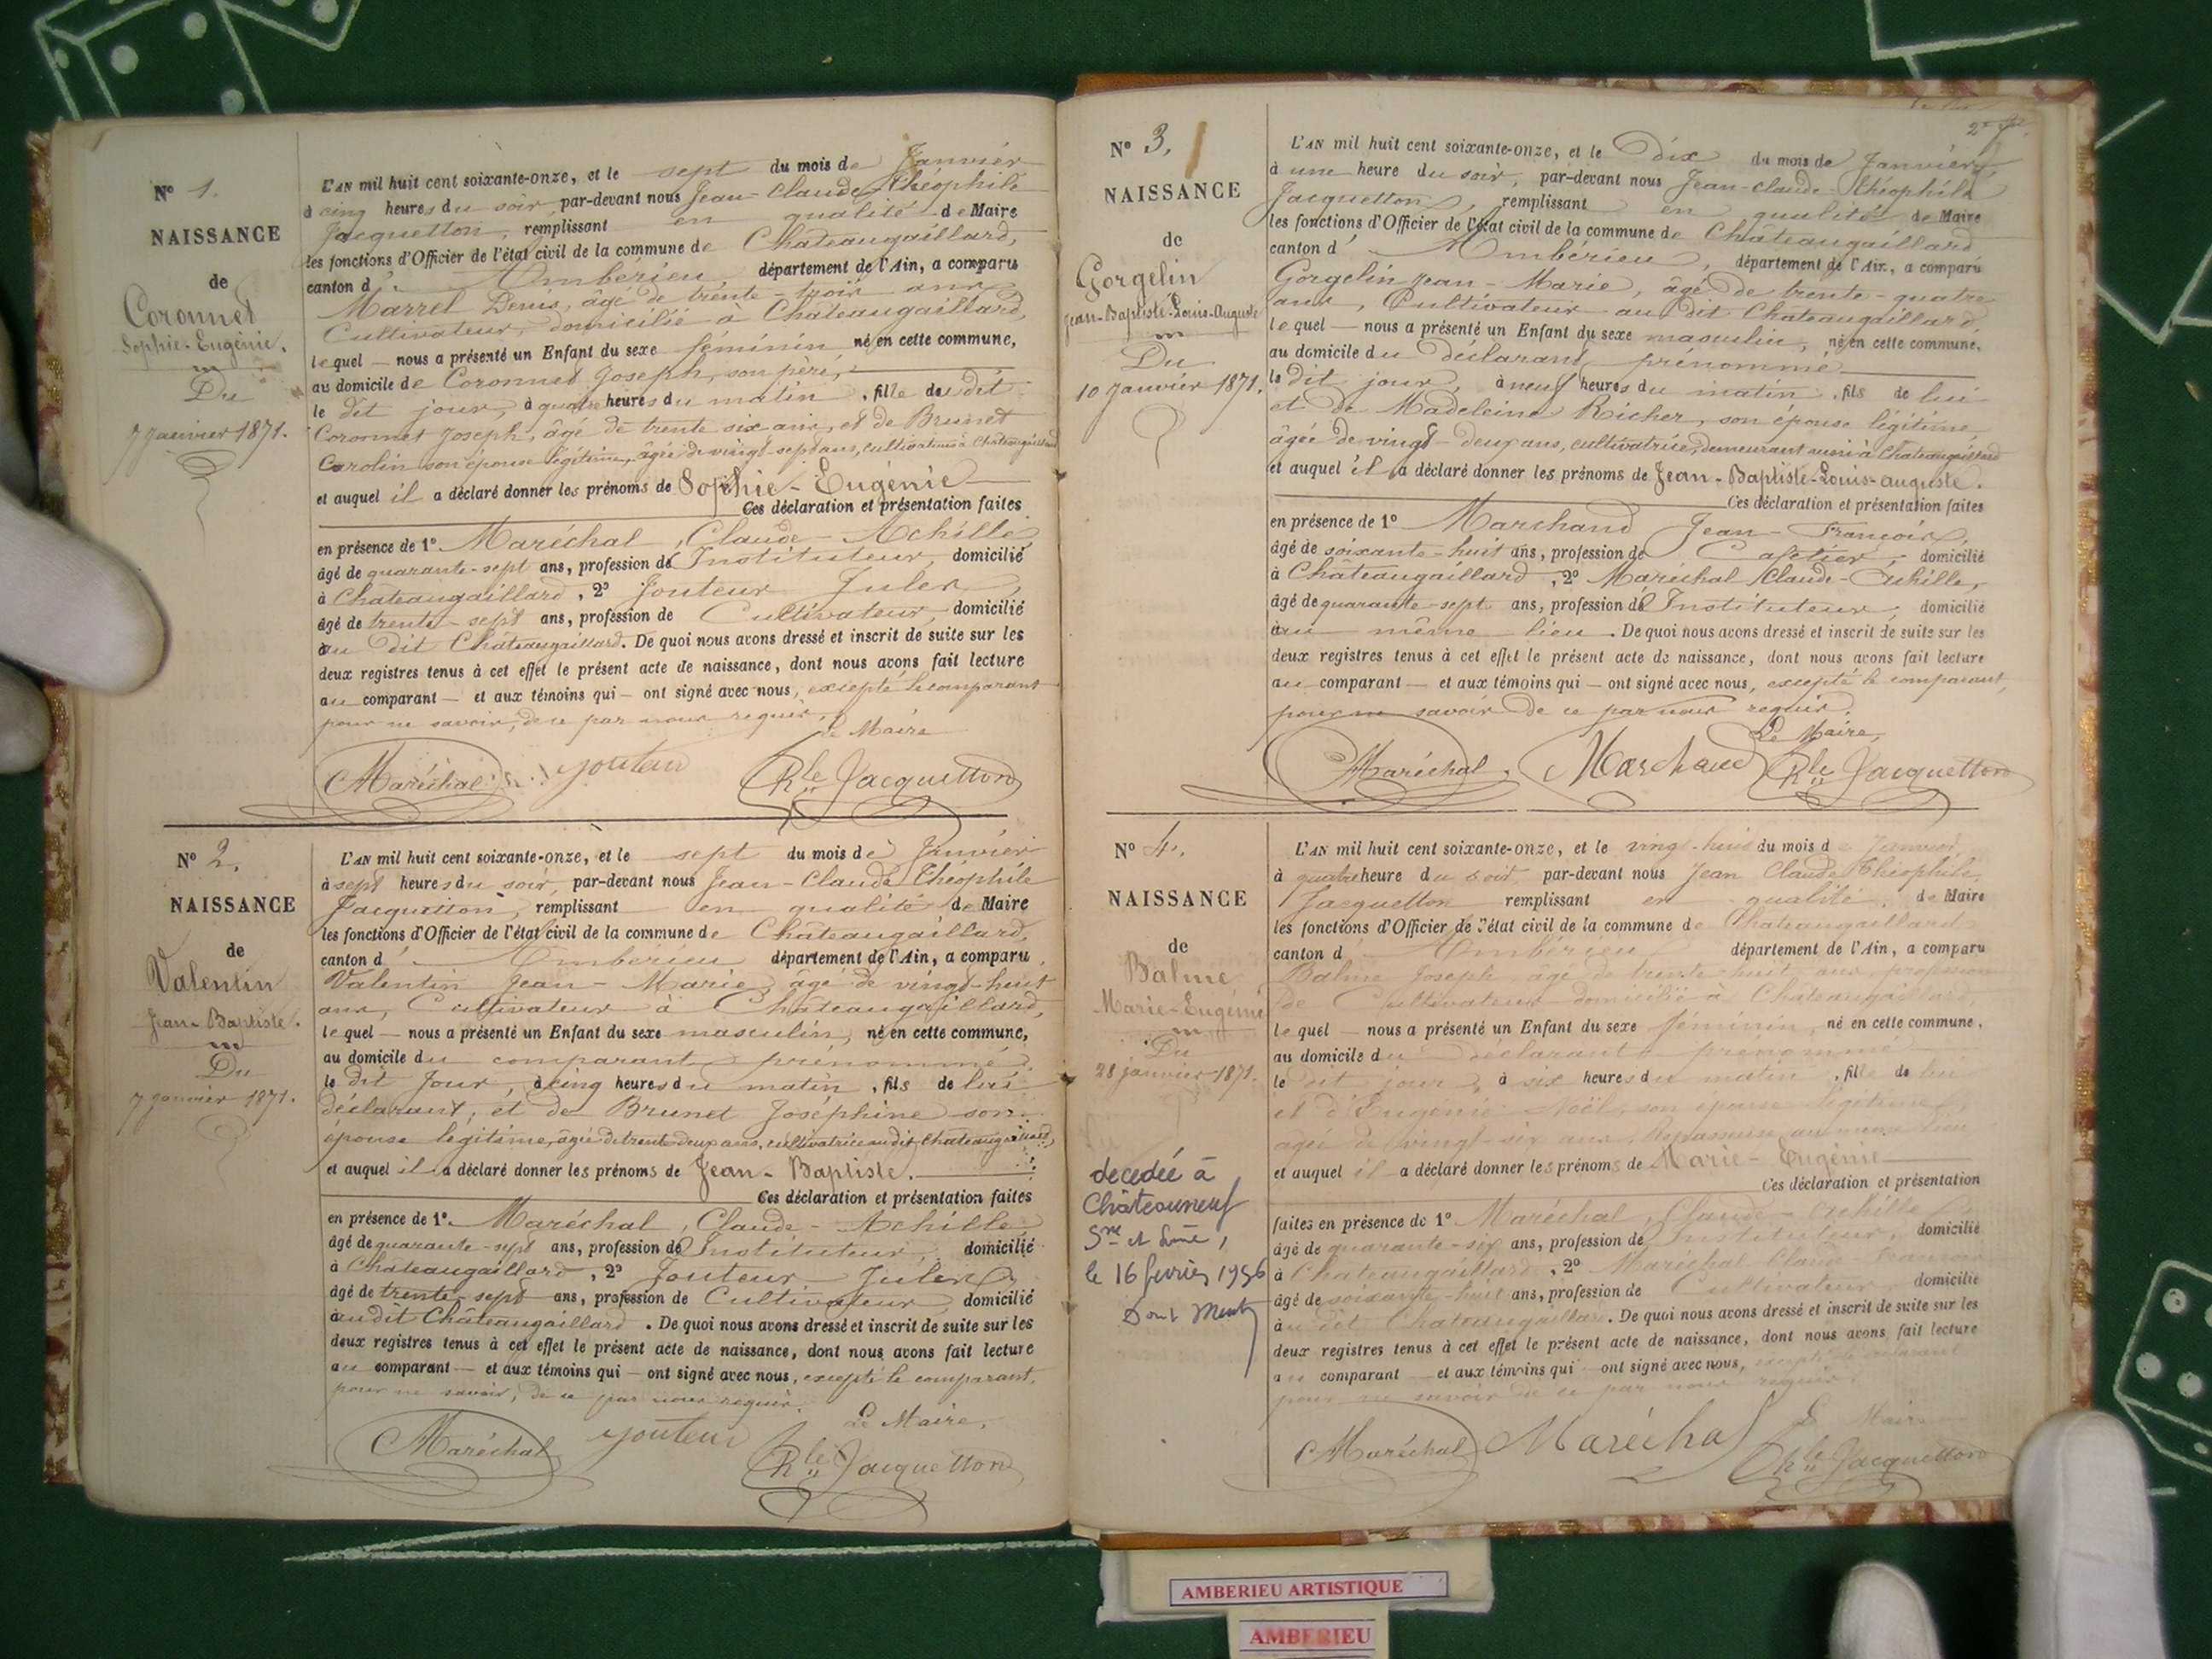 N° 1.
NAISSANCE
de
Coronnet
Sophie-Eugénie.
Du
7 Janvier 1871.
L'AN mil huit cent soixante-onze, et le sept du mois de Janvier
à cinq heures du soir, par-devant nous Jean-Claude Théophile
Jacquetton, remplissant en qualité de Maire
les fonctions d'Officier de l'état civil de la commune de Chateaugaillard,
canton d' Ambérieu département de l'Ain, a comparu
Marrel Denis, âgé de trente-trois ans,
Cultivateur, domicilié à Chateaugaillard,
lequel — nous a présenté un Enfant du sexe féminin né en cette commune,
au domicile de Coronnet Joseph, son père,
le dit jour, à quatre heures du matin, fille du dit
Coronnet Joseph, âgé de trente six ans, et de Brunet
Carolin son épouse légitime, âgée de vingt-sept ans, cultivateurs à Chateaugaillard
et auquel il a déclaré donner les prénoms de Sophie-Eugénie
Ces déclaration et présentation faites
en présence de 1° Maréchal, Claude-Achille
âgé de quarante-sept ans, profession de Instituteur, domicilié
à Chateaugaillard, 2° Jouteur Jules,
âgé de trente-sept ans, profession de Cultivateur, domicilié
au dit Châteaugaillard. De quoi nous avons dressé et inscrit de suite sur les
deux registres tenus à cet effet le présent acte de naissance, dont nous avons fait lecture
au comparant — et aux témoins qui — ont signé avec nous, excepté le comparant
pour ne savoir, de ce par nous requis.
Le Maire
Maréchal Jouteur Jacquetton
N° 2.
NAISSANCE
de
Valentin
Jean-Baptiste.
Du
7 Janvier 1871.
L'AN mil huit cent soixante-onze, et le sept du mois de Janvier
à sept heures du soir, par-devant nous Jean-Claude Théophile
Jacquetton, remplissant en qualité de Maire
les fonctions d'Officier de l'état civil de la commune de Châteaugaillard,
canton d' Ambérieu département de l'Ain, a comparu
Valentin Jean-Marie, âgé de vingt-huit
ans, Cultivateur à Châteaugaillard,
lequel — nous a présenté un Enfant du sexe masculin, né en cette commune,
au domicile du comparant prénommé
le dit jour, à cinq heures du matin, fils de lui
déclarant, et de Brunet Joséphine son
épouse légitime, âgée de trente deux ans, cultivatrice au dit Chateaugaillard,
et auquel il a déclaré donner les prénoms de Jean-Baptiste.
Ces déclaration et présentation faites
en présence de 1°. Maréchal, Claude-Achille
âgé de quarante-sept ans, profession de Instituteur, domicilié
à Chateaugaillard, 2° Jouteur Jules
âgé de trente-sept ans, profession de Cultivateur domicilié
au dit Châteaugaillard. De quoi nous avons dressé et inscrit de suite sur les
deux registres tenus à cet effet le présent acte de naissance, dont nous avons fait lecture
au comparant — et aux témoins qui — ont signé avec nous, excepté le comparant,
pour ne savoir, de ce par nous requis.
Le Maire,
Maréchal Jouteur Jacquetton
N° 3.
NAISSANCE
de
Gorgelin
Jean-Baptiste-Louis-Auguste
Du
10 Janvier 1871.
L'AN mil huit cent soixante-onze, et le dix du mois de Janvier,
à une heure du soir, par-devant nous Jean-claude-Théophile
Jacquetton, remplissant en qualité de Maire
les fonctions d'Officier de l'état civil de la commune de Châteaugaillard
canton d' Ambérieu, département de l'Ain, a comparu
Gorgelin Jean-Marie, âgé de trente-quatre
ans, Cultivateur au dit Chateaugaillard,
lequel — nous a présenté un Enfant du sexe masculin, né en cette commune,
au domicile du déclarant prénommé
le dit jour, à neuf heures du matin, fils de lui
et de Madeleine Richer, son épouse légitime
âgée de vingt-deux ans, cultivatrice, demeurant aussi à Chateaugaillard
et auquel il a déclaré donner les prénoms de Jean-Baptiste-Louis-auguste.
Ces déclaration et présentation faites
en présence de 1° Marchand Jean-François,
âgé de soixante-huit ans, profession de Cafetier, domicilié
à Châteaugaillard, 2° Maréchal Claude-Achille,
âgé de quarante-sept ans, profession de Instituteur, domicilié
au même lieu. De quoi nous avons dressé et inscrit de suite sur les
deux registres tenus à cet effet le présent acte de naissance, dont nous avons fait lecture
au comparant — et aux témoins qui — ont signé avec nous, excepté le comparant,
pour ne savoir de ce par nous requis.
Le Maire,
Maréchal. Marchand Jacquetton
N° 4.
NAISSANCE
de
Balme
Marie-Eugénie
Du
28 janvier 1871.
decedée à
Châteauneuf
le 16 fevrier 1956
Dont Ment
L'AN mil huit cent soixante-onze, et le vingt-huit du mois de Janvier
à quatre heure du soir par-devant nous Jean Claude Théophile
Jacquetton remplissant en qualité de Maire
les fonctions d'Officier de l'état civil de la commune de Chateaugaillard
canton d' Ambérieu département de l'Ain, a comparu
Balme Joseph agé de trente-huit ans profession
de Cultivateur domicilié à Châteaugaillard,
lequel — nous a présenté un Enfant du sexe féminin, né en cette commune,
au domicile du déclarant prénommé
le dit jour, à six heures du matin, fille de lui
et d'Eugénie Noël, son épouse légitime,
agée de vingt-six ans, Repasseuse au même lieu
et auquel il a déclaré donner les prénoms de Marie-Eugénie
Ces déclaration et présentation
faites en présence de 1° Maréchal, Claude-Achille
âgé de quarante-six ans, profession de Instituteur, domicilié
à Chateaugaillard, 2° Maréchal Claude François
âgé de soixante-huit ans, profession de Cultivateur domicilié
au dit Chateaugaillard. De quoi nous avons dressé et inscrit de suite sur les
deux registres tenus à cet effet le présent acte de naissance, dont nous avons fait lecture
au comparant — et aux témoins qui — ont signé avec nous, excepté le déclarant
pour ne savoir de ce par nous requis.
Le Maire
Maréchal Maréchal Jacquetton
AMBERIEU ARTISTIQUE
AMBERIEU